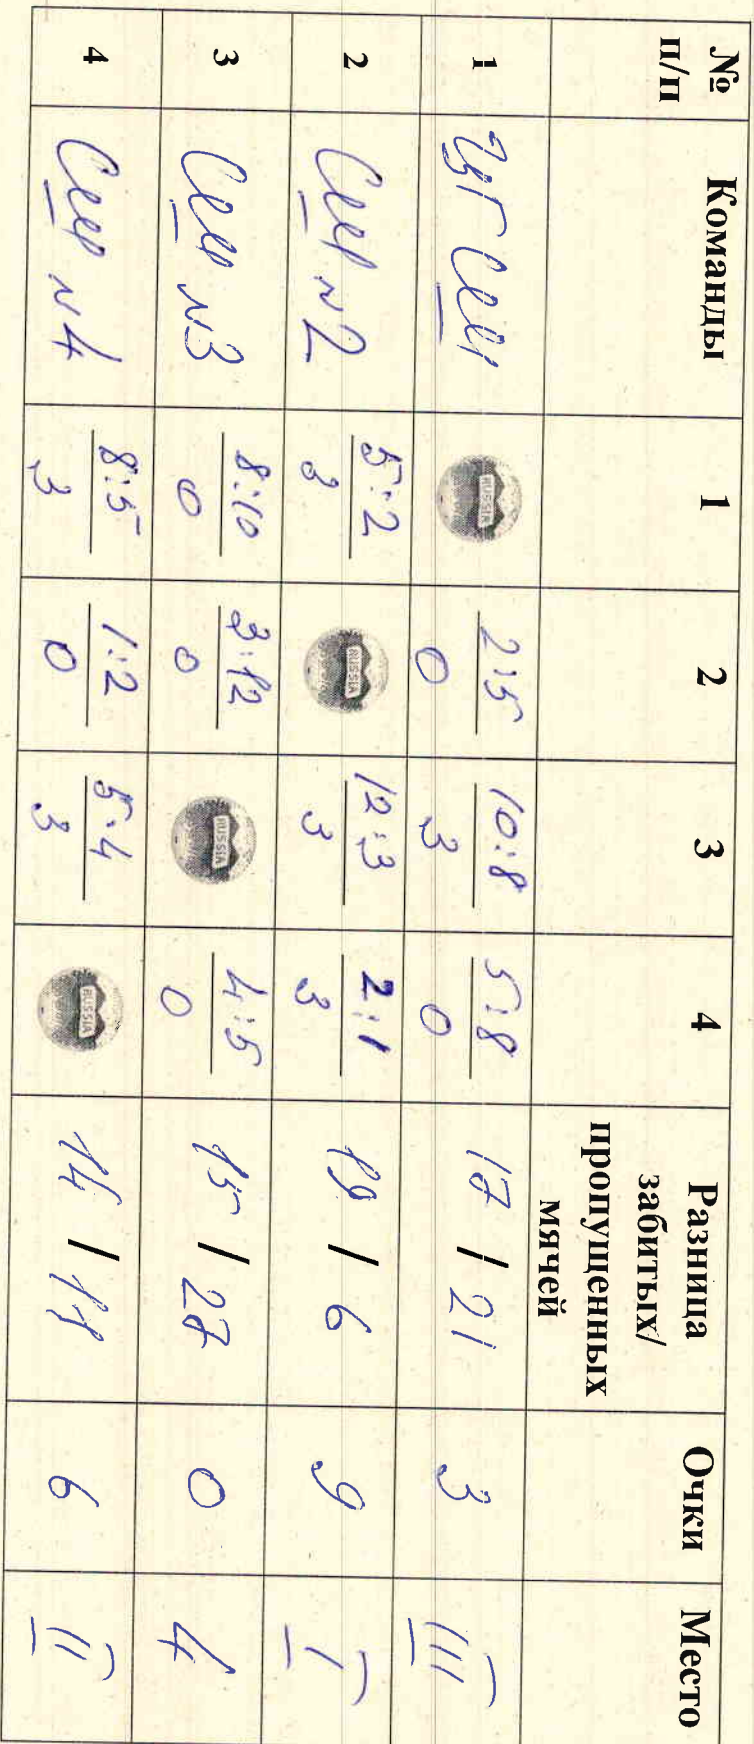 № п/п Команды 1 2 3 4 Разница забитых/ пропущенных мячей Очки Место
1 RUSSIA 2:5 0 10:8 3 5:8 0 17 / 21 3 III
2 №2 5:2 3 RUSSIA 12:3 3 2:1 3 19 / 6 9 I
3 №3 8:10 0 3:12 0 RUSSIA 4:5 0 15 / 27 0 4
4 №4 8:5 3 1:2 0 5:4 3 RUSSIA 14 / 11 6 II